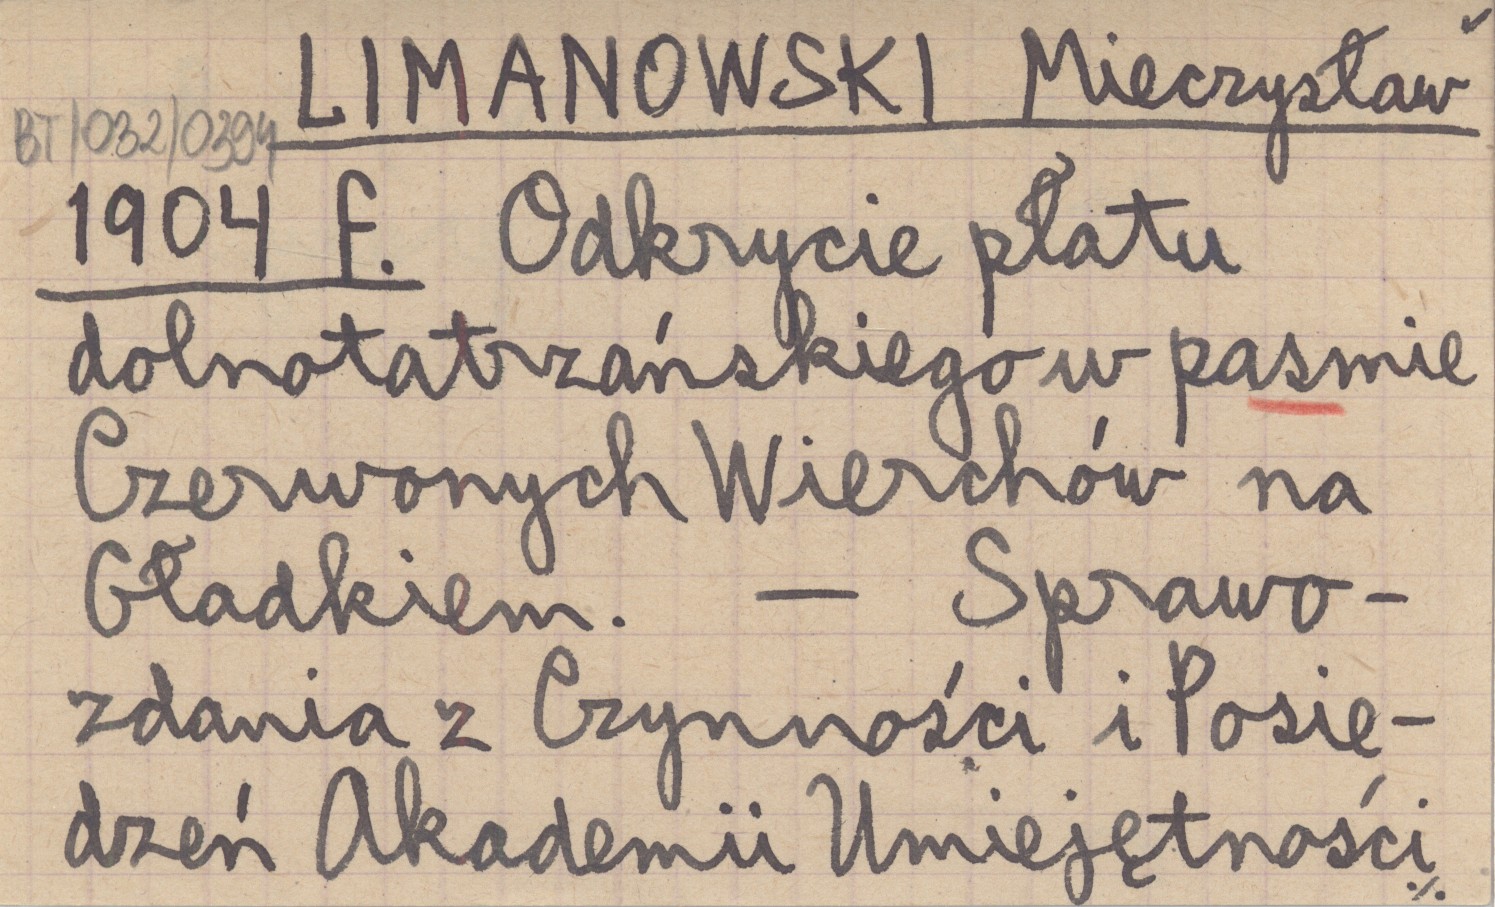 LIMANOWSKI Mieczysław
BT/032/0394
1904 f. Odkrycie płatu
dolnotatrzańskiego w pasmie
Czerwonych Wierchów na
Gładkiem. — Sprawo-
zdania z Czynności i Posie-
dzeń Akademii Umiejętności
./.